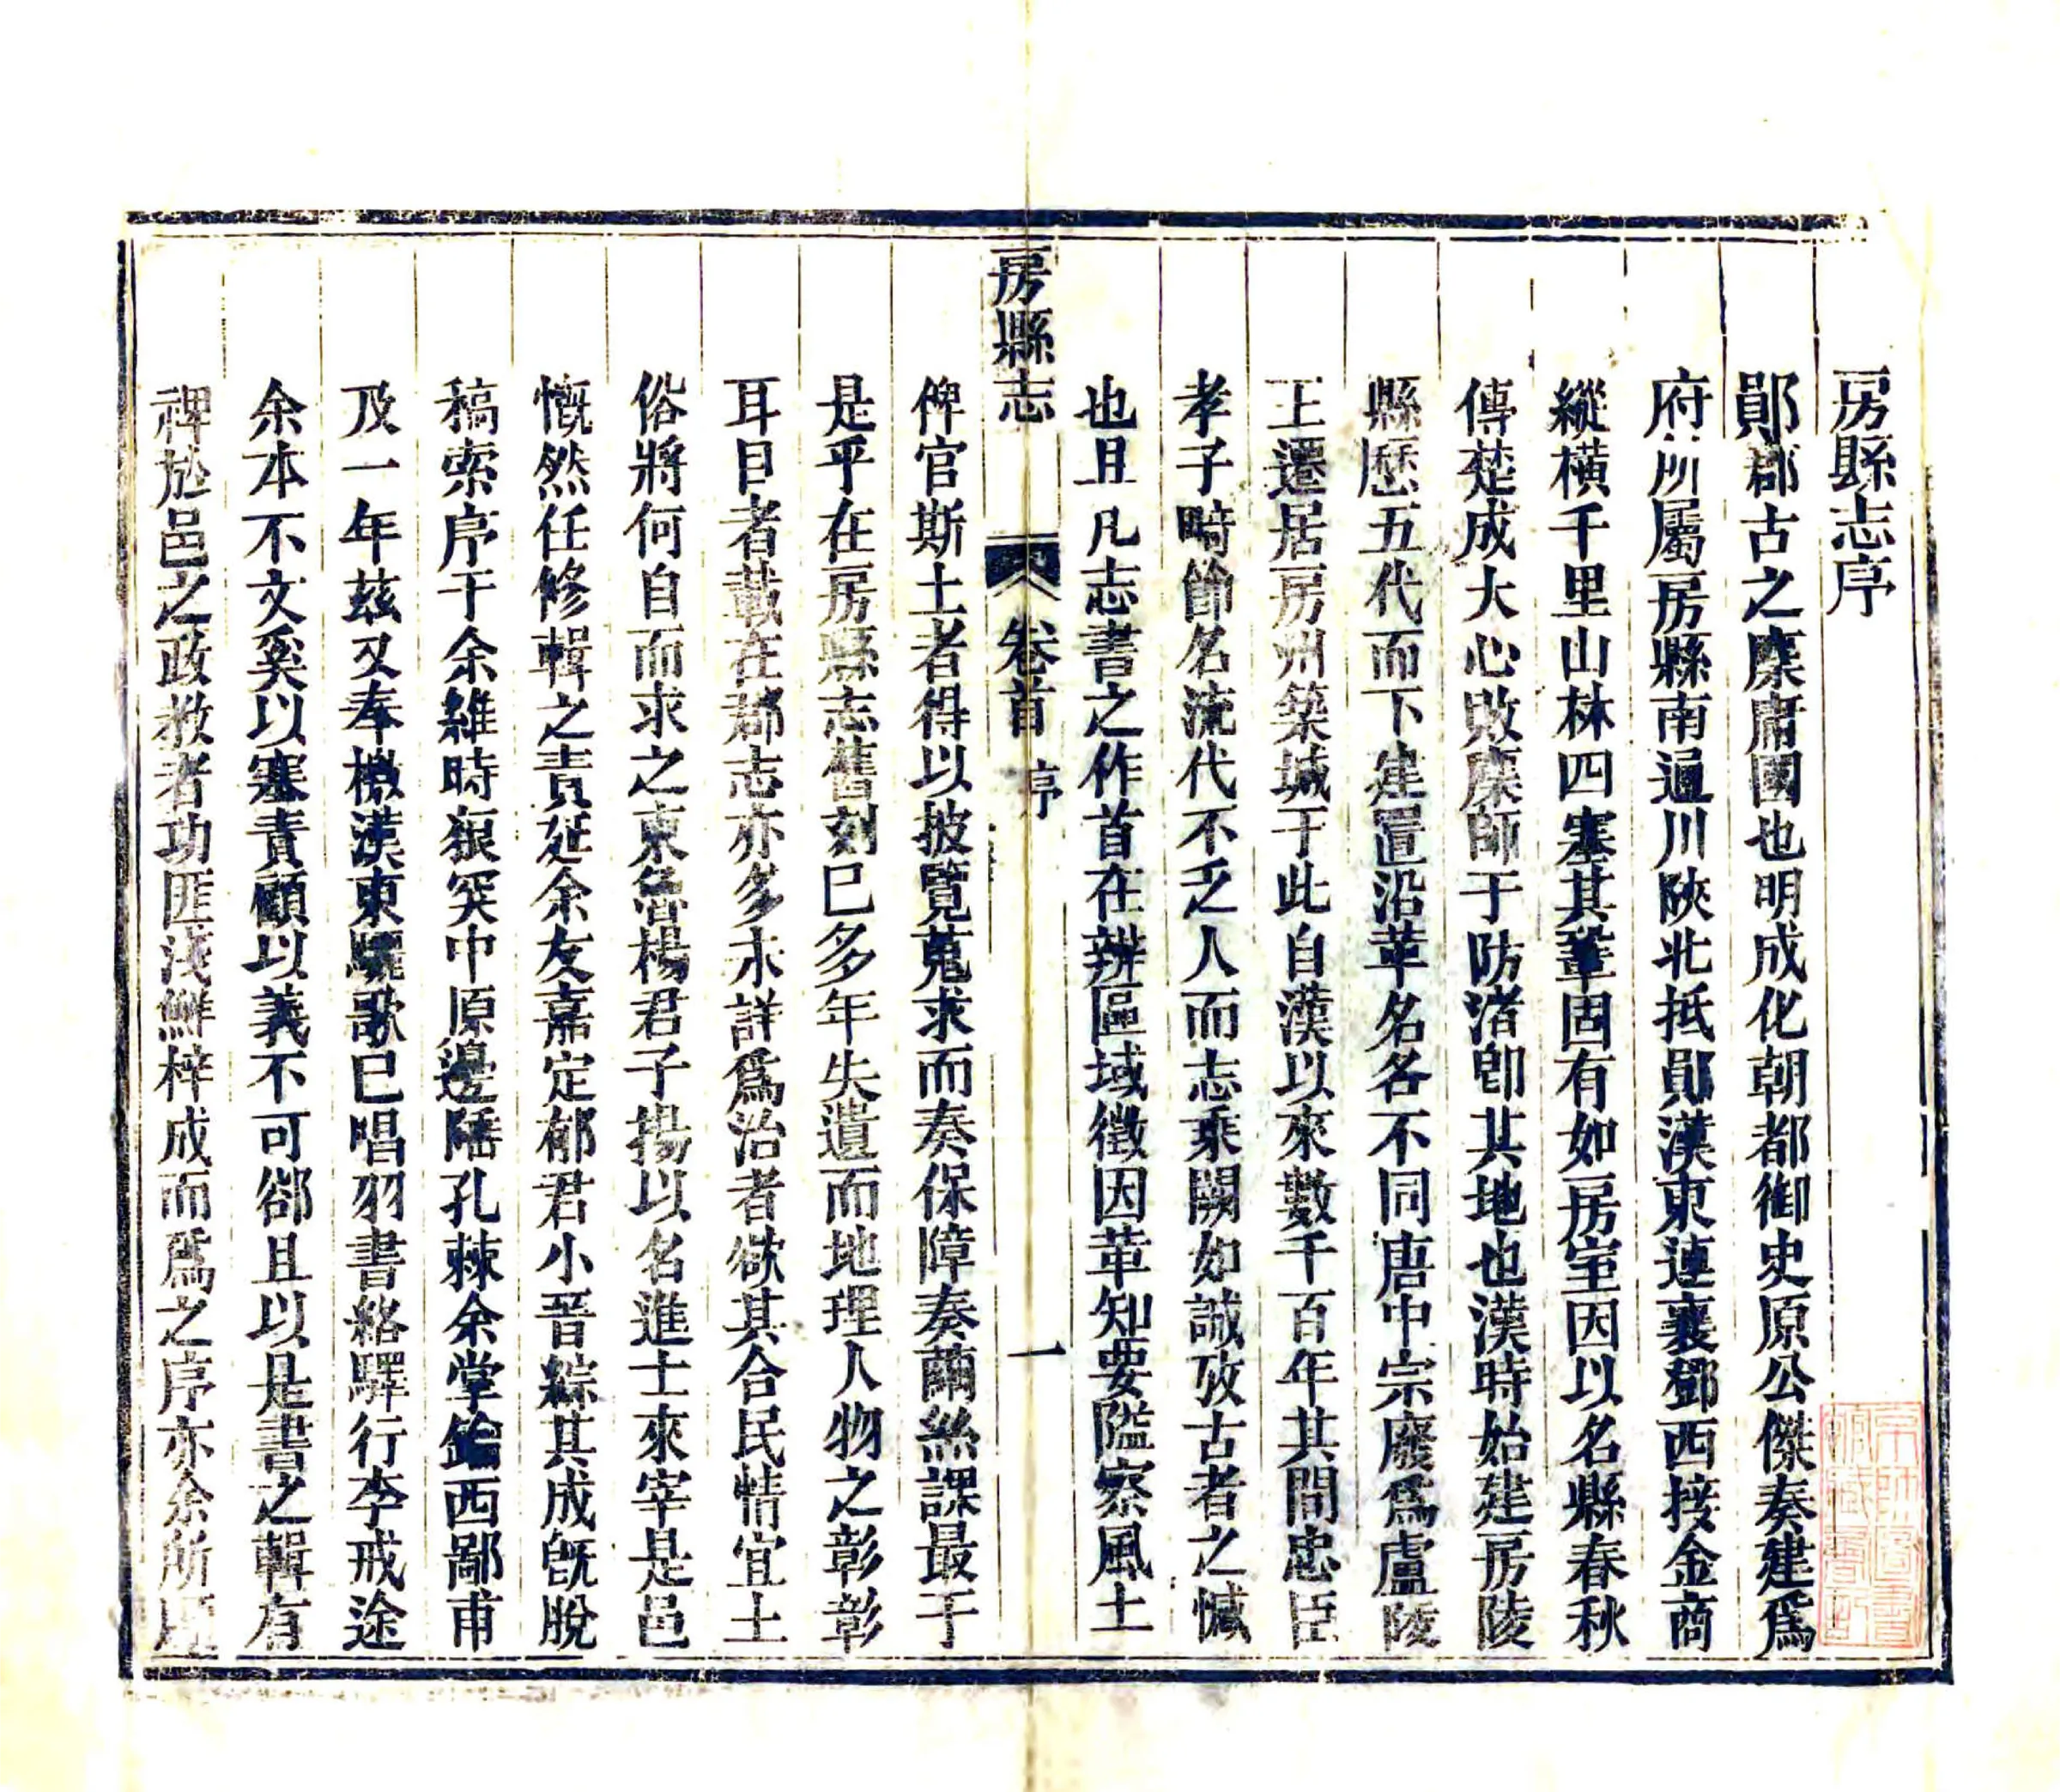 房縣志序
鄖郡古之麇庸國也明成化朝都御史原公傑奏建爲
府所屬房縣南通川陝北抵鄖漢東連襄鄧西接金商
縱橫千里山林四塞其鞏固有如房室因以名縣春秋
傳楚成大心敗麇師于防渚卽其地也漢時始建房陵
縣歷五代而下建置沿革名各不同唐中宗廢爲盧陵
王遷居房州築城于此自漢以來數千百年其間忠臣
孝子畸節名流代不乏人而志乘闕如誠攷古者之憾
也且凡志書之作首在辨區域徵因革知要隘察風土
俾官斯土者得以披覽蒐求而奏保障奏繭絲課最于
是乎在房縣志舊刻已多年失遺而地理人物之彰彰
耳目者載在郡志亦多未詳爲治者欲其合民情宜土
俗將何自而求之東魯楊君子揚以名進士來宰是邑
慨然任修輯之責延余友嘉定郁君小晉綜其成旣脫
稿索序于余維時狼突中原邊陲孔棘余掌鑰西鄙甫
及一年茲又奉檄漢東驪歌已唱羽書絡驛行李戒途
余本不文奚以塞責顧以義不可卻且以是書之輯有
裨於邑之政敎者功匪淺鮮梓成而爲之序亦余所
房縣志 卷首 序 一